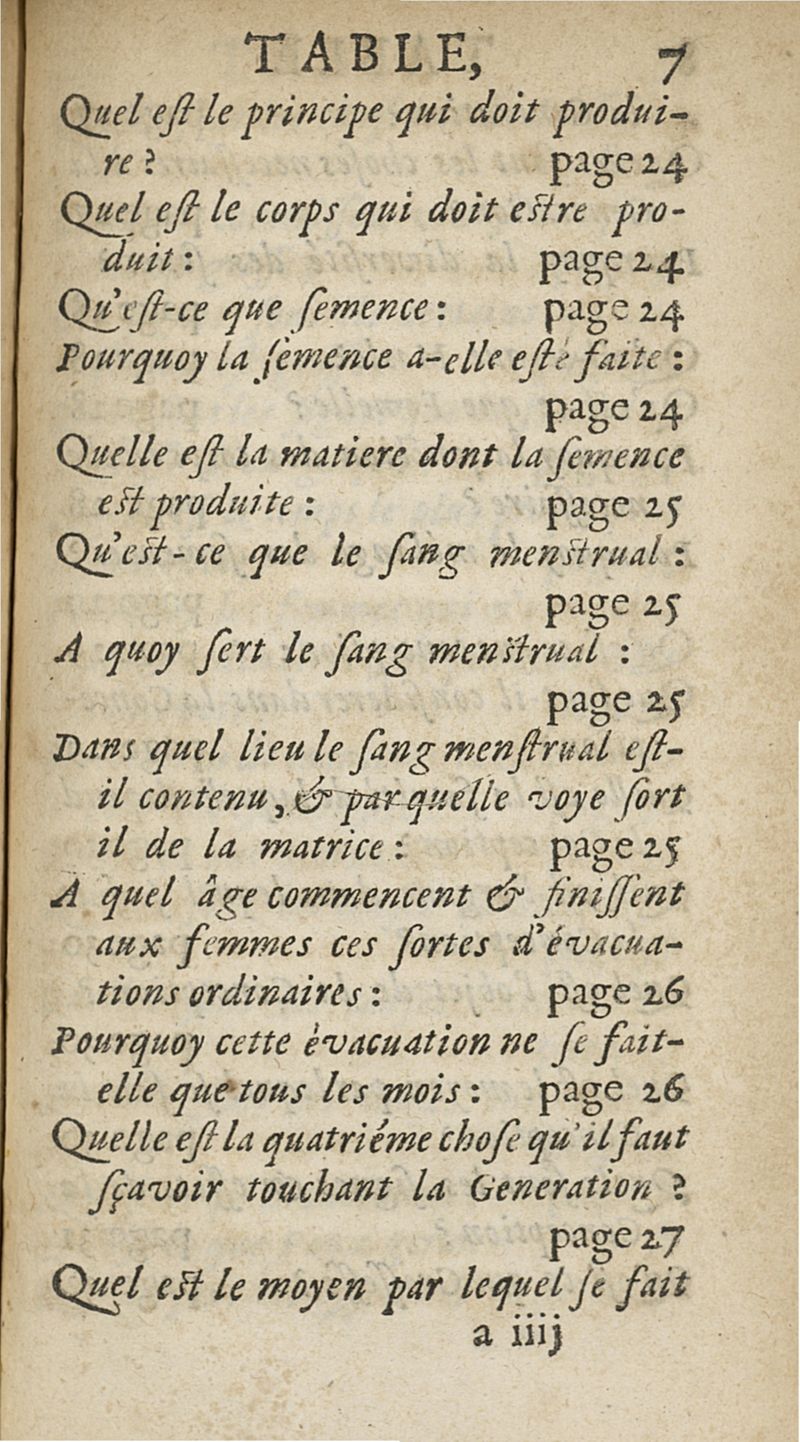 TABLE, 7
Quel eſt le principe qui doit produi-
re ? page 24
Quel eſt le corps qui doit eſtre pro-
duit : page 24
Qu'eſt-ce que ſemence : page 24
Pourquoy la ſemence a-elle eſté faite :
page 24
Quelle eſt la matiere dont la ſemence
eſt produite : page 25
Qu'eſt-ce que le ſang menſtrual :
page 25
A quoy ſert le ſang menſtrual :
page 25
Dans quel lieu le ſang menſtrual eſt-
il contenu, & par quelle voye ſort
il de la matrice : page 25
A quel âge commencent & finiſſent
aux femmes ces ſortes d'évacua-
tions ordinaires : page 26
Pourquoy cette èvacuation ne ſe fait-
elle que tous les mois : page 26
Quelle eſt la quatriéme choſe qu'il faut
ſçavoir touchant la Generation ?
page 27
Quel eſt le moyen par lequel ſe fait
a iiij